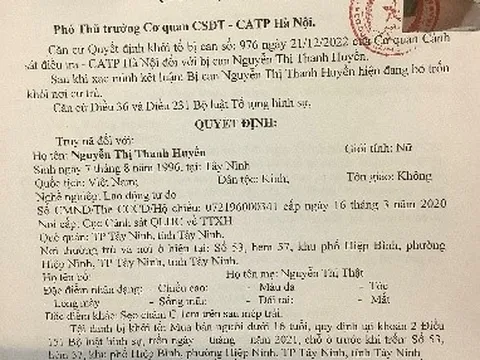 Phó Thủ trưởng Cơ quan CSĐT - CATP Hà Nội.
Căn cứ Quyết định khởi tố bị can số: 976 ngày 21/12/2022 của Cơ quan Cảnh
sát điều tra - CATP Hà Nội đối với bị can Nguyễn Thị Thanh Huyền.
Sau khi xác minh kết luận: Bị can Nguyễn Thị Thanh Huyền hiện đang bỏ trốn
khỏi nơi cư trú.
Căn cứ Điều 36 và Điều 231 Bộ luật Tố tụng hình sự,
QUYẾT ĐỊNH:
Truy nã đối với:
Họ tên: Nguyễn Thị Thanh Huyền Giới tính: Nữ
Sinh ngày 7 tháng 8 năm 1996, tại: Tây Ninh
Quốc tịch: Việt Nam; Dân tộc: Kinh; Tôn giáo: Không
Nghề nghiệp: Lao động tự do
Số CMND/Thẻ CCCD/Hộ chiếu: 072196000341 cấp ngày 16 tháng 3 năm 2020
Nơi cấp: Cục Cảnh sát QLHC về TTXH
Quê quán: TP Tây Ninh, tỉnh Tây Ninh.
Nơi thường trú và nơi ở hiện tại: Số 53, hẻm 37, khu phố Hiệp Bình, phường
Hiệp Ninh, TP Tây Ninh, tỉnh Tây Ninh.
Họ tên bố: Họ tên mẹ: Nguyễn Thị Thật
Đặc điểm nhân dạng: - Chiều cao: - Màu da - Tóc
- Lông mày - Sống mũi: - Dái tai: - Mắt
Đặc điểm khác: Sẹo chấm C 1cm trên sau mép trái.
Tội danh bị khởi tố: Mua bán người dưới 16 tuổi, quy định tại khoản 2 Điều
151 Bộ luật hình sự, trên ngày tháng năm 2021, chỗ ở trước khi trốn: Số
53, hẻm 37, khu phố Hiệp Bình, phường Hiệp Ninh, TP Tây Ninh, tỉnh Tây Ninh.